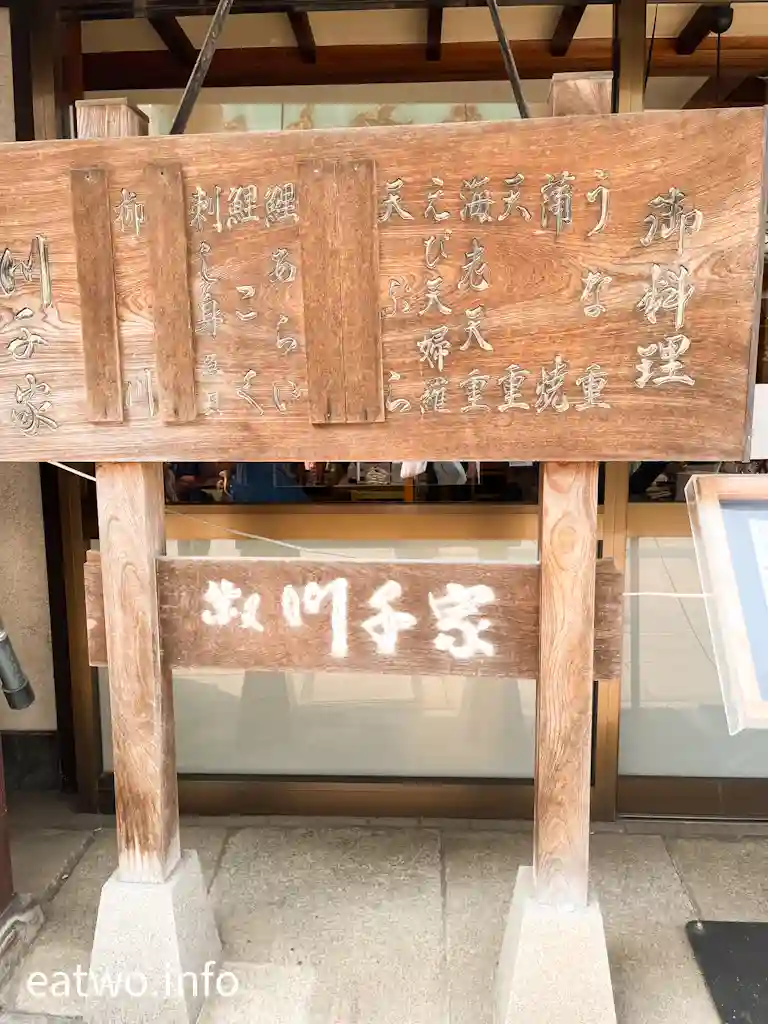 御料理
うな重
蒲焼
天重
海老天重
えび天婦羅
天ぷら
鯉あらい
鯉こく
刺し身
柳川
川千家
川千家
eatwo.info